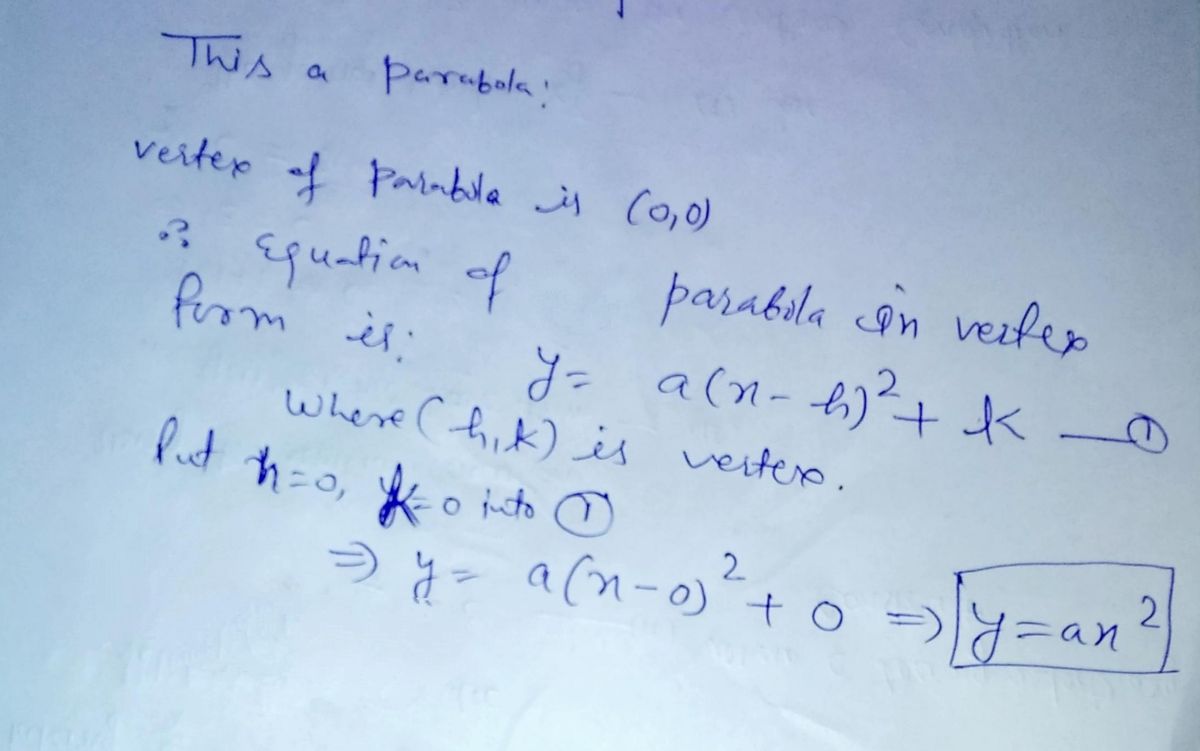 This a parabola:
vertex of parabola is (0,0)
∴ Equation of parabola in vertex
form is: y= a(x-h)²+ k —①
where (h,k) is vertex.
Put h=0, k=0 into ①
⇒ y= a(x-0)²+ 0 ⇒ y=ax²